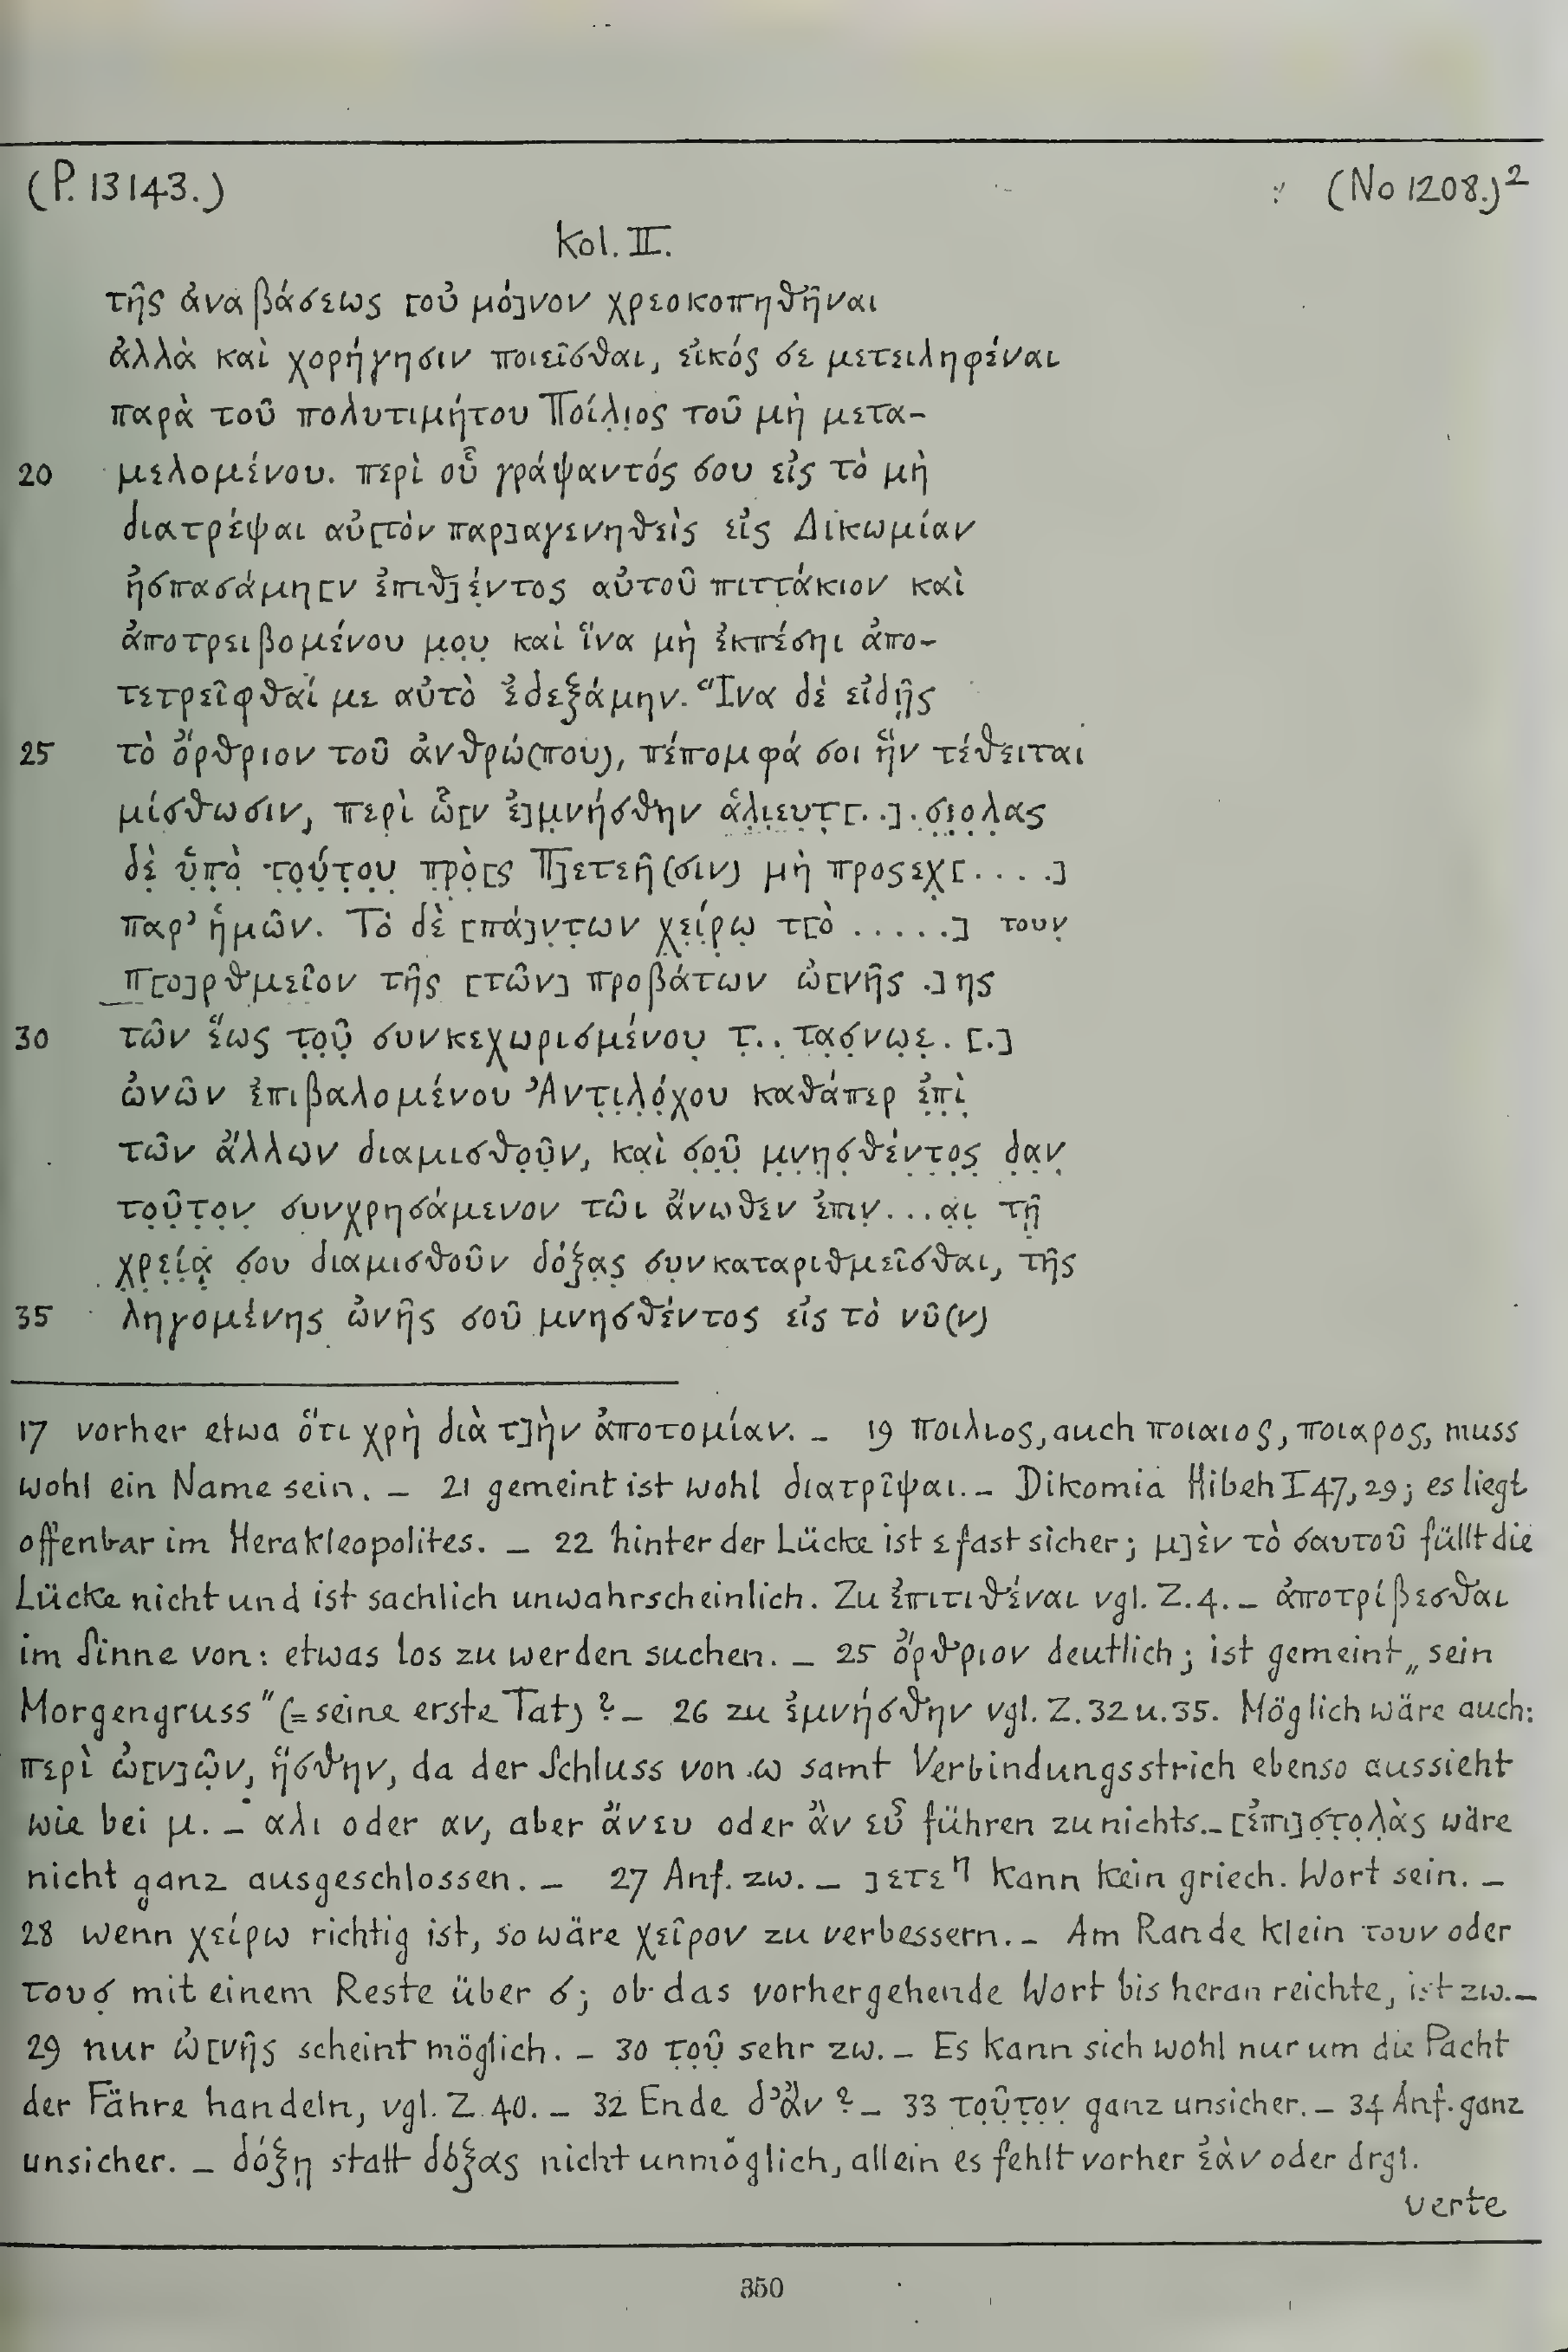 (P. 13143.) (No 1208.)²
Kol. II.
τῆς ἀναβάσεως [οὐ μό]νον χρεοκοπηθῆναι
ἀλλὰ καὶ χορήγησιν ποιεῖσθαι, εἰκός σε μετειληφέναι
παρὰ τοῦ πολυτιμήτου Ποίλ̣ι̣ος τοῦ μὴ μετα-
20 μελομένου. περὶ οὗ γράψαντός σου εἰς τὸ μὴ
διατρέψαι αὐ[τὸν παρ]αγενηθεὶς εἰς Δικωμίαν
ἠσπασάμη[ν ἐπιθ]έ̣ντος αὐτοῦ πιττάκιον καὶ
ἀποτρειβομένου μ̣ο̣υ̣ καὶ ἵνα μὴ ἐκπέσηι ἀπο-
τετρεῖφθαί με αὐτὸ ἐδεξάμην. Ἵνα δὲ εἰδῇς
25 τὸ ὄρθριον τοῦ ἀνθρώ(που), πέπομφά σοι ἣν τέθειται
μίσθωσιν, περὶ ὧ[ν ἐ]μ̣νήσθην ἁ̣λ̣ι̣ε̣υ̣τ̣[..]. σ̣ι̣ο̣λ̣ας
δὲ̣ ὑ̣π̣ὸ̣ τ̣ο̣ύ̣τ̣ο̣υ̣ π̣ρ̣ὸ̣[ς Π]ετεῆ(σιν) μὴ προσεχ̣[....]
παρ’ ἡμῶν. Τὸ δὲ [πά]ν̣τ̣ων χ̣ε̣ί̣ρ̣ῳ̣ τ[ὸ .....] τουν̣
π[ο]ρθμεῖον τῆς [τῶν] προβάτων ὠ[νῆς .]ης
30 τῶν ἕως τ̣ο̣ῦ̣ συνκεχωρισμένου̣ τ̣.. τα̣σ̣νω̣ε̣. [.]
ὠνῶν ἐπιβαλομένου Ἀντ̣ι̣λ̣ό̣χου καθάπερ ἐ̣π̣ὶ̣
τῶν ἄλλων διαμισθο̣ῦ̣ν̣, κα̣ὶ̣ σ̣ο̣ῦ̣ μ̣ν̣η̣σ̣θέ̣ν̣τ̣ο̣ς̣ δ̣α̣ν̣
το̣ῦ̣τ̣ο̣ν̣ συνχρησάμενον τῶι ἄνωθεν ἐπιν̣...α̣ι̣ τῇ̣
χ̣ρ̣ε̣ί̣ᾳ̣ σ̣ου διαμισθοῦν δόξα̣ς̣ συ̣νκαταριθμεῖσθαι, τῆς
35 ληγομένης ὠνῆς σοῦ μνησθέντος εἰς τὸ νῦ(ν)
17 vorher etwa ὅτι χρὴ διὰ τ]ὴν ἀποτομίαν. – 19 ποιλιος, auch ποιαιος, ποιαρος, muss
wohl ein Name sein. – 21 gemeint ist wohl διατρῖψαι. – Dikomia Hibeh I 47, 29; es liegt
offenbar im Herakleopolites. – 22 hinter der Lücke ist ε fast sicher; μ]ὲν τὸ σαυτοῦ füllt die
Lücke nicht und ist sachlich unwahrscheinlich. Zu ἐπιτιθέναι vgl. Z. 4. – ἀποτρίβεσθαι
im Sinne von: etwas los zu werden suchen. – 25 ὄρθριον deutlich; ist gemeint „sein
Morgengruss" (= seine erste Tat)? – 26 zu ἐμνήσθην vgl. Z. 32 u. 35. Möglich wäre auch:
περὶ ὠ[ν]ῶ̣ν, ἥσθην, da der Schluss von ω samt Verbindungsstrich ebenso aussieht
wie bei μ. – αλι oder αν, aber ἄνευ oder ἂν εὖ führen zu nichts. – [ἐπι]σ̣τ̣ο̣λ̣ὰς wäre
nicht ganz ausgeschlossen. – 27 Anf. zw. – ]ετεⁿ kann kein griech. Wort sein. –
28 wenn χείρω richtig ist, so wäre χεῖρον zu verbessern. – Am Rande klein τουν oder
τουσ̣ mit einem Reste über σ; ob das vorhergehende Wort bis heran reichte, ist zw. –
29 nur ὠ[νῆς scheint möglich. – 30 τ̣ο̣ῦ̣ sehr zw. – Es kann sich wohl nur um die Pacht
der Fähre handeln, vgl. Z. 40. – 32 Ende δ’ἂν? – 33 το̣ῦ̣τ̣ο̣ν̣ ganz unsicher. – 34 Anf. ganz
unsicher. – δόξῃ statt δόξας nicht unmöglich, allein es fehlt vorher ἐὰν oder drgl.
verte
350